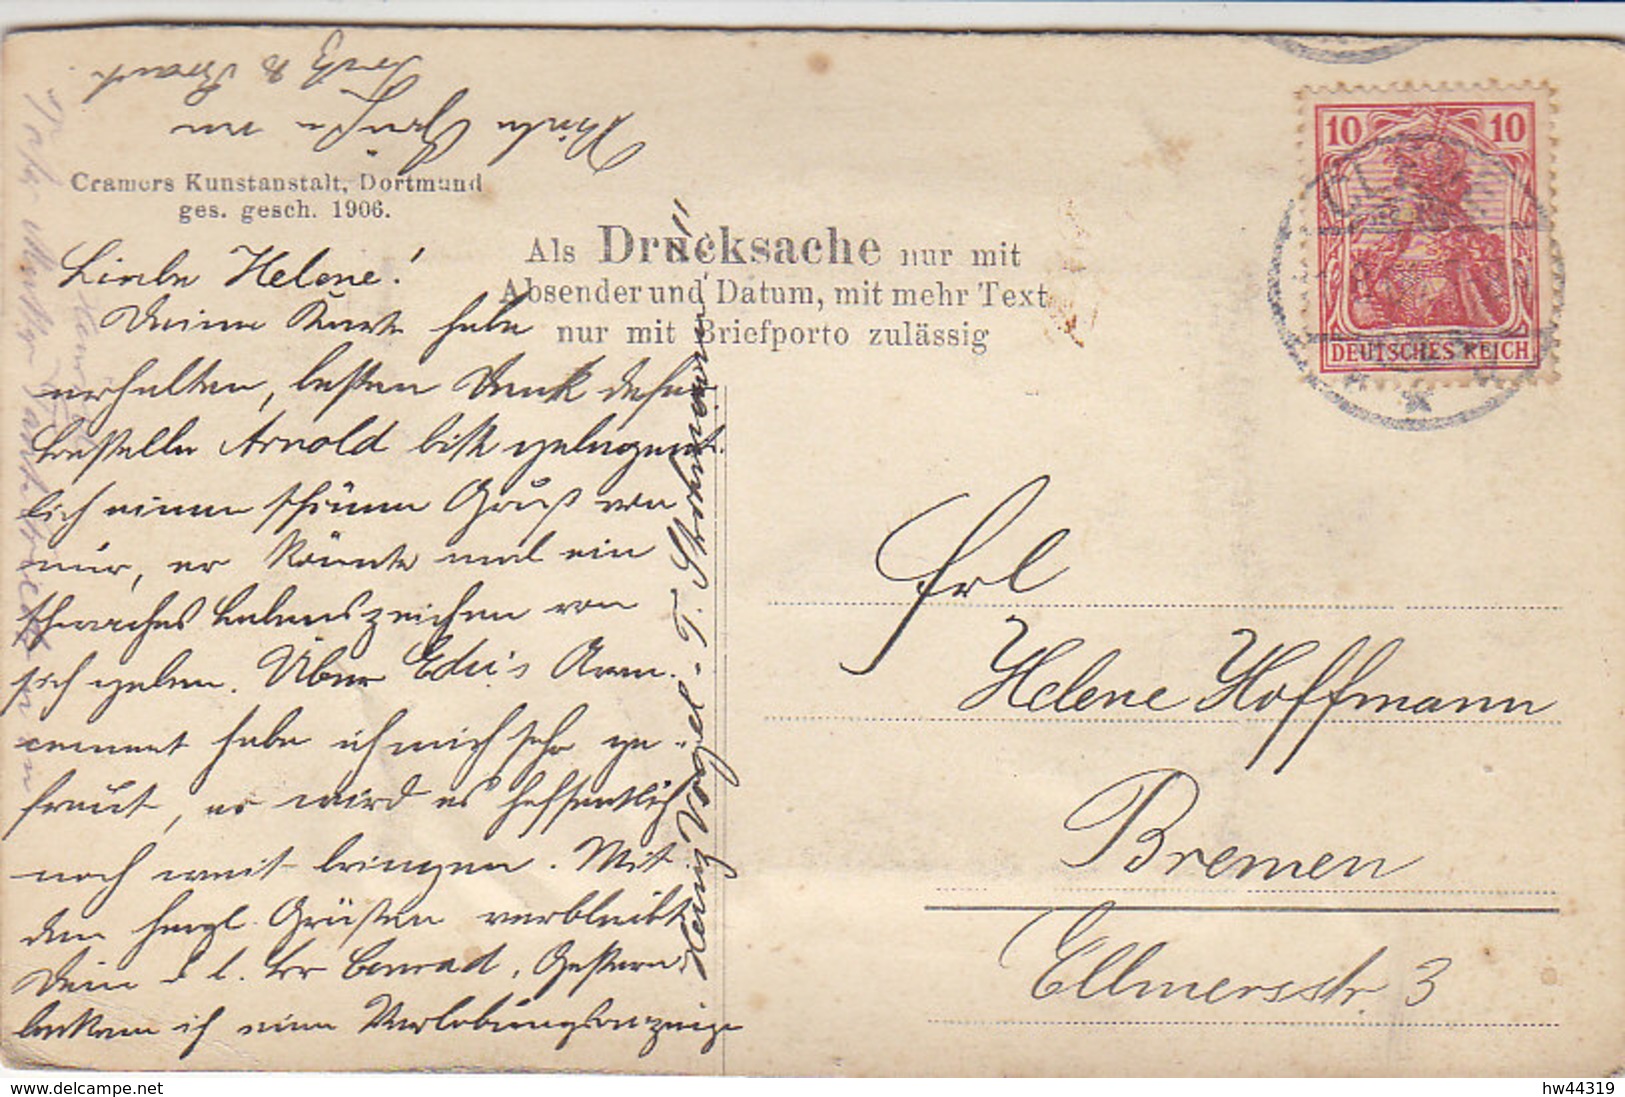 Viele Grüße von
Fritz & Braut
Cramers Kunstanstalt, Dortmund
ges. gesch. 1906.
Als Drucksache nur mit
Absender und Datum, mit mehr Text
nur mit Briefporto zulässig
10 10
DEUTSCHES REICH
Liebe Helene!
Deine Karte habe
erhalten, besten Dank dafür
bestelle Arnold bitte gelegent-
lich einen schönen Gruß von
mir, er könnte mal ein
schwaches Lebenszeichen von
sich geben. Über Edu's Avan-
cement habe ich mich sehr ge-
freut, er wird es hoffentlich
noch weit bringen. Mit
den herzl. Grüßen verbleibt
Dein Conrad, Gestern
bekam ich eine Verlobungsanzeige
Heinz Vogel - T. Strohmeier!!
Frl
Helene Hoffmann
Bremen
Ellmersstr. 3
delcampe.net
hw44319